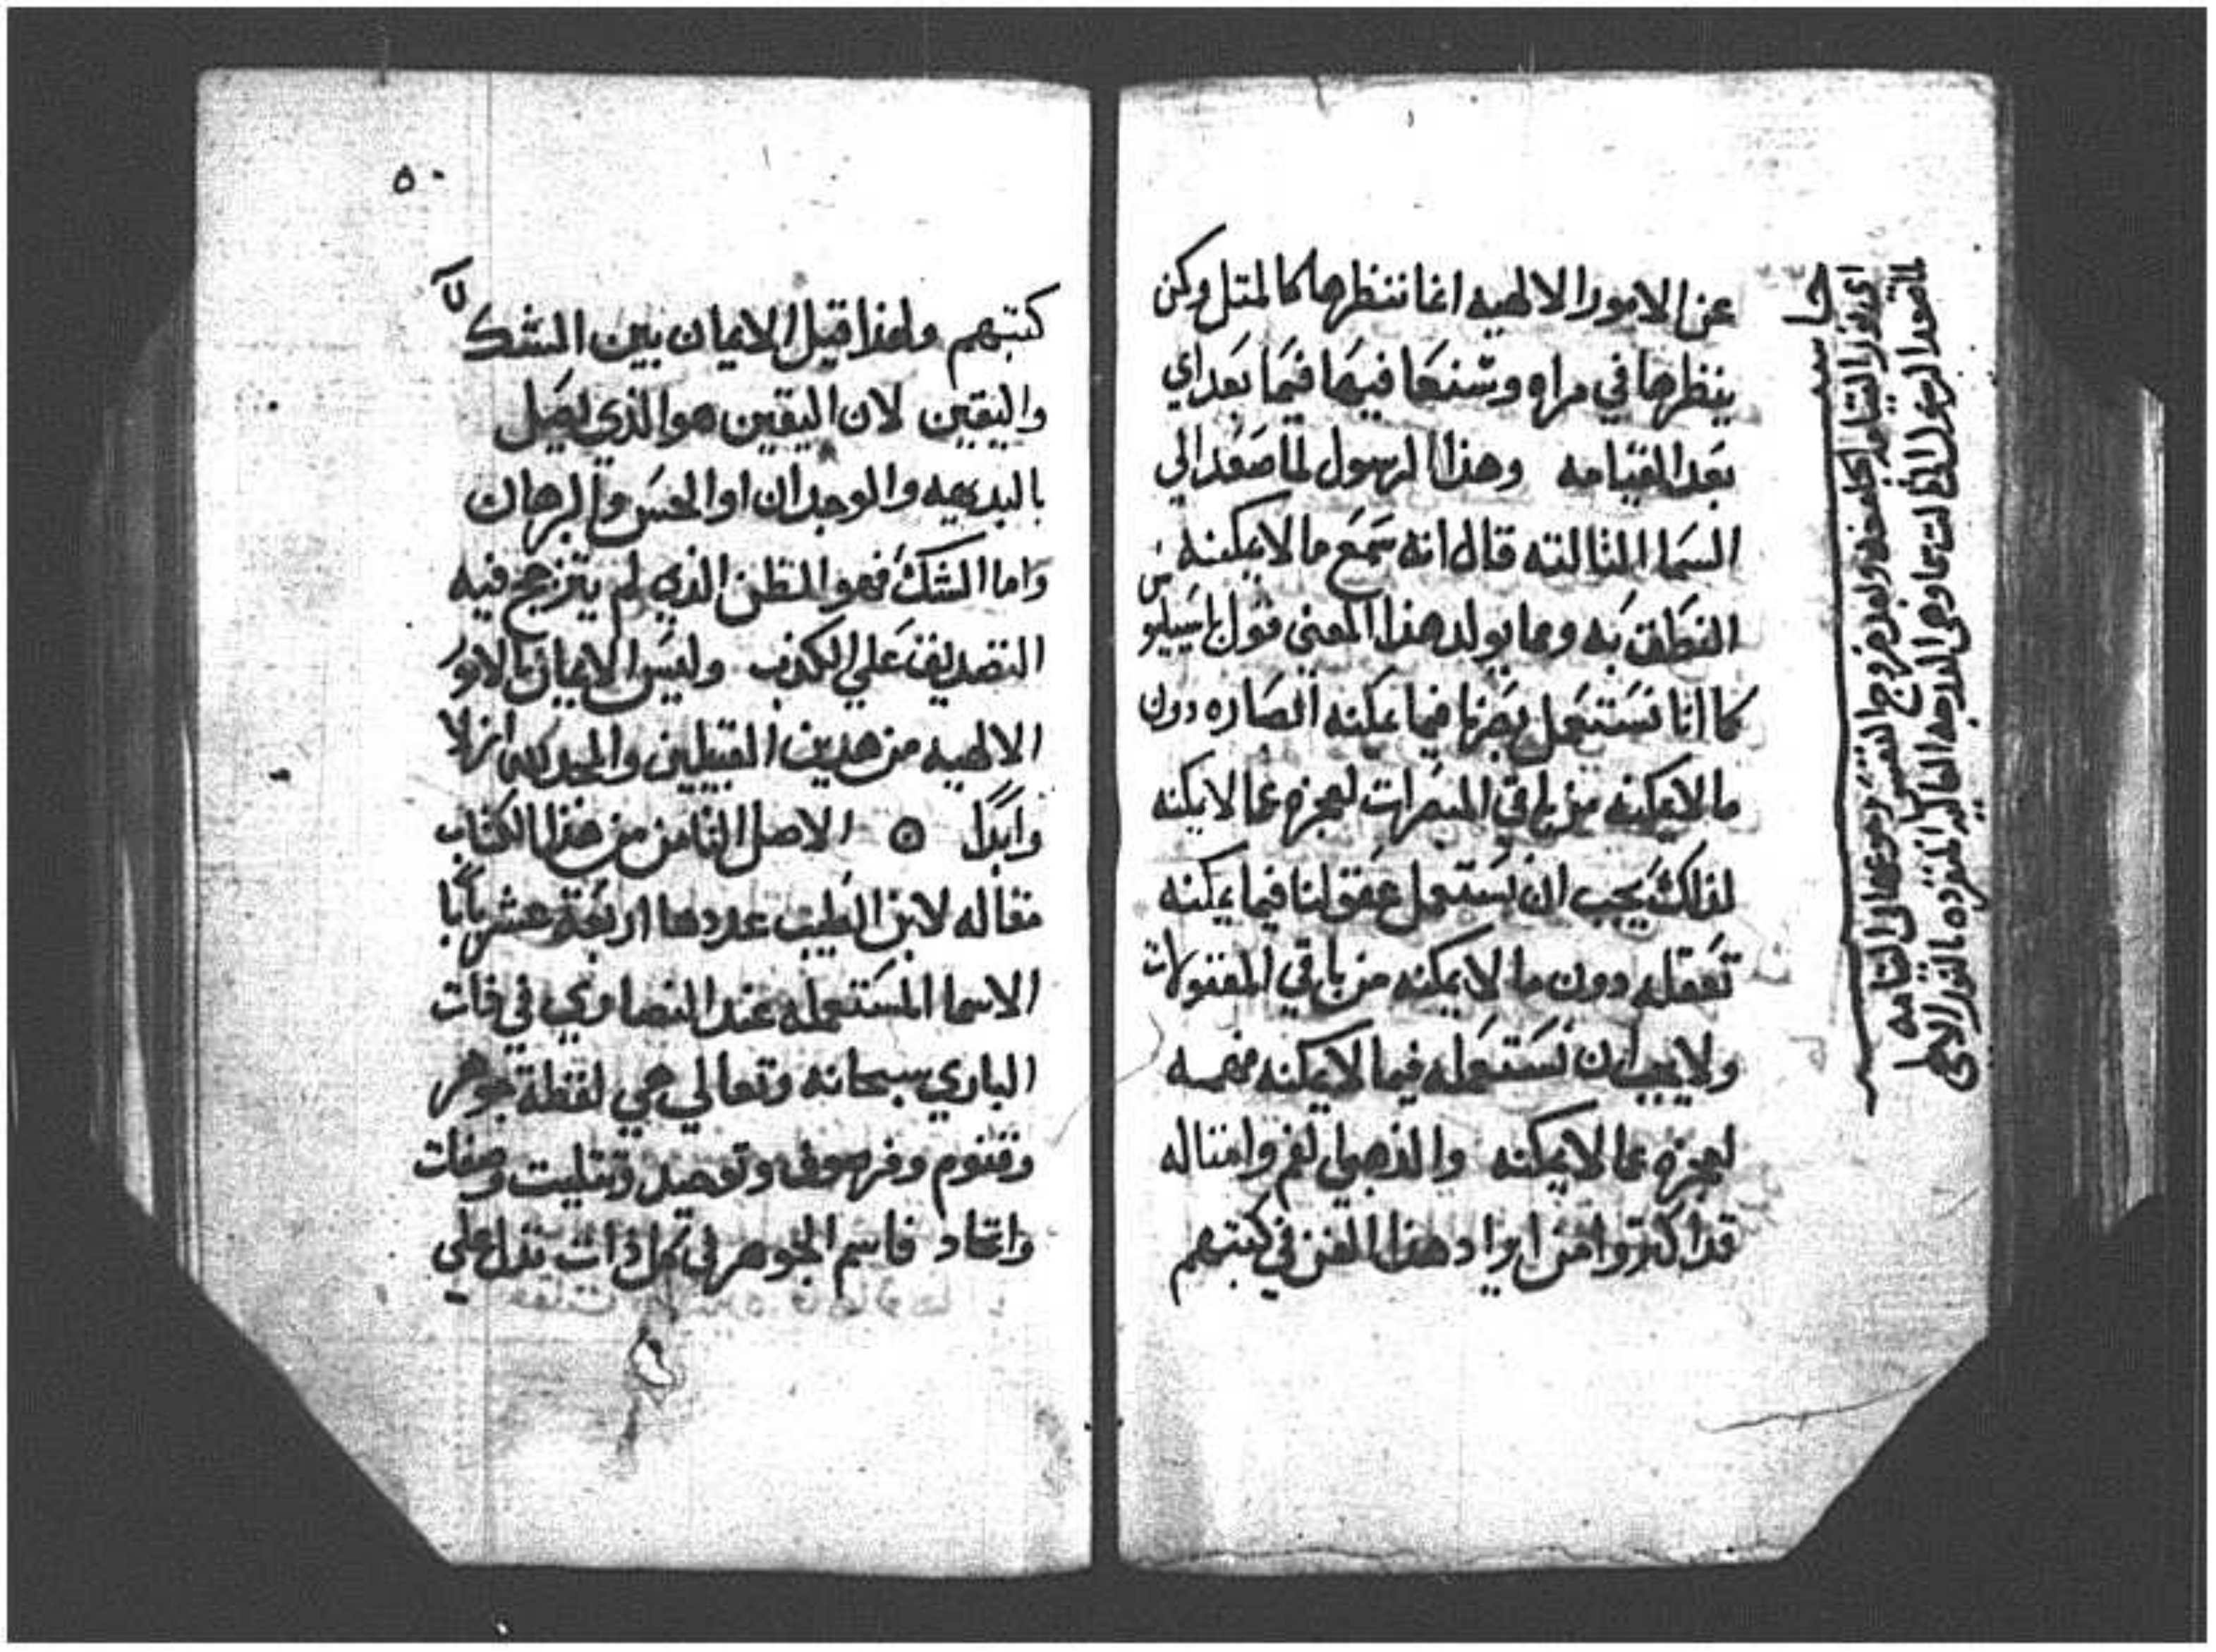 عن الامور الالهيه انما ننظرها كالمتل وكمن
ينظرها في مراه وسنعها فيها فيما بعد اي
بعد القيامه وهذا الرسول لما صعد الي
السما التالته قال انه سمع ما لا يمكنه
النطق به ومما يولد هذا المعني قول باسيليوس
كما انا نستعمل بصرنا فيما يمكنه ابصاره دون
ما لا يمكنه من باقي المبصرات لعجزه عما لا يمكنه
لذلك يجب ان نستعمل عقولنا فيما يمكنه
تعقله دون ما لا يمكنه من باقي المعقولات
ولا يجب ان نستعمله فيما لا يمكنه فهمه
لعجزه عما لا يمكنه والذهبي الفم وامتاله
قد اكتروا من ايراد هذا الفن في كتبهم
حاشيه
المقصود الرسول
٥٠
كتبهم ولهذا قيل الايمان بين الشك
واليقين لان اليقين هو الذي يحصل
بالبديهيه والوجدان او الحس والبرهان
واما الشك فهو الظن الذي لم يترجح فيه
التصديق علي الكذب وليس الايمان بالامور
الالهيه من هدين القبيلين والمجد لله ازلا
وابدا ۞ الاصل التامن من هذا الكتاب
مقاله لابن الطيب عددها اربعة عشر بابا
الاسما المستعمله عند النصاري في ذات
الباري سبحانه وتعالي هي لفظة جوهر
وقنوم وفرصوف وتوحيد وتتليت وصفات
واتحاد فاسم الجوهر في كل ذات يدل علي